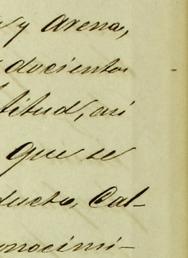 y arena,
docientos
titud, asi
que se
ducto, Cal-
nocimi-